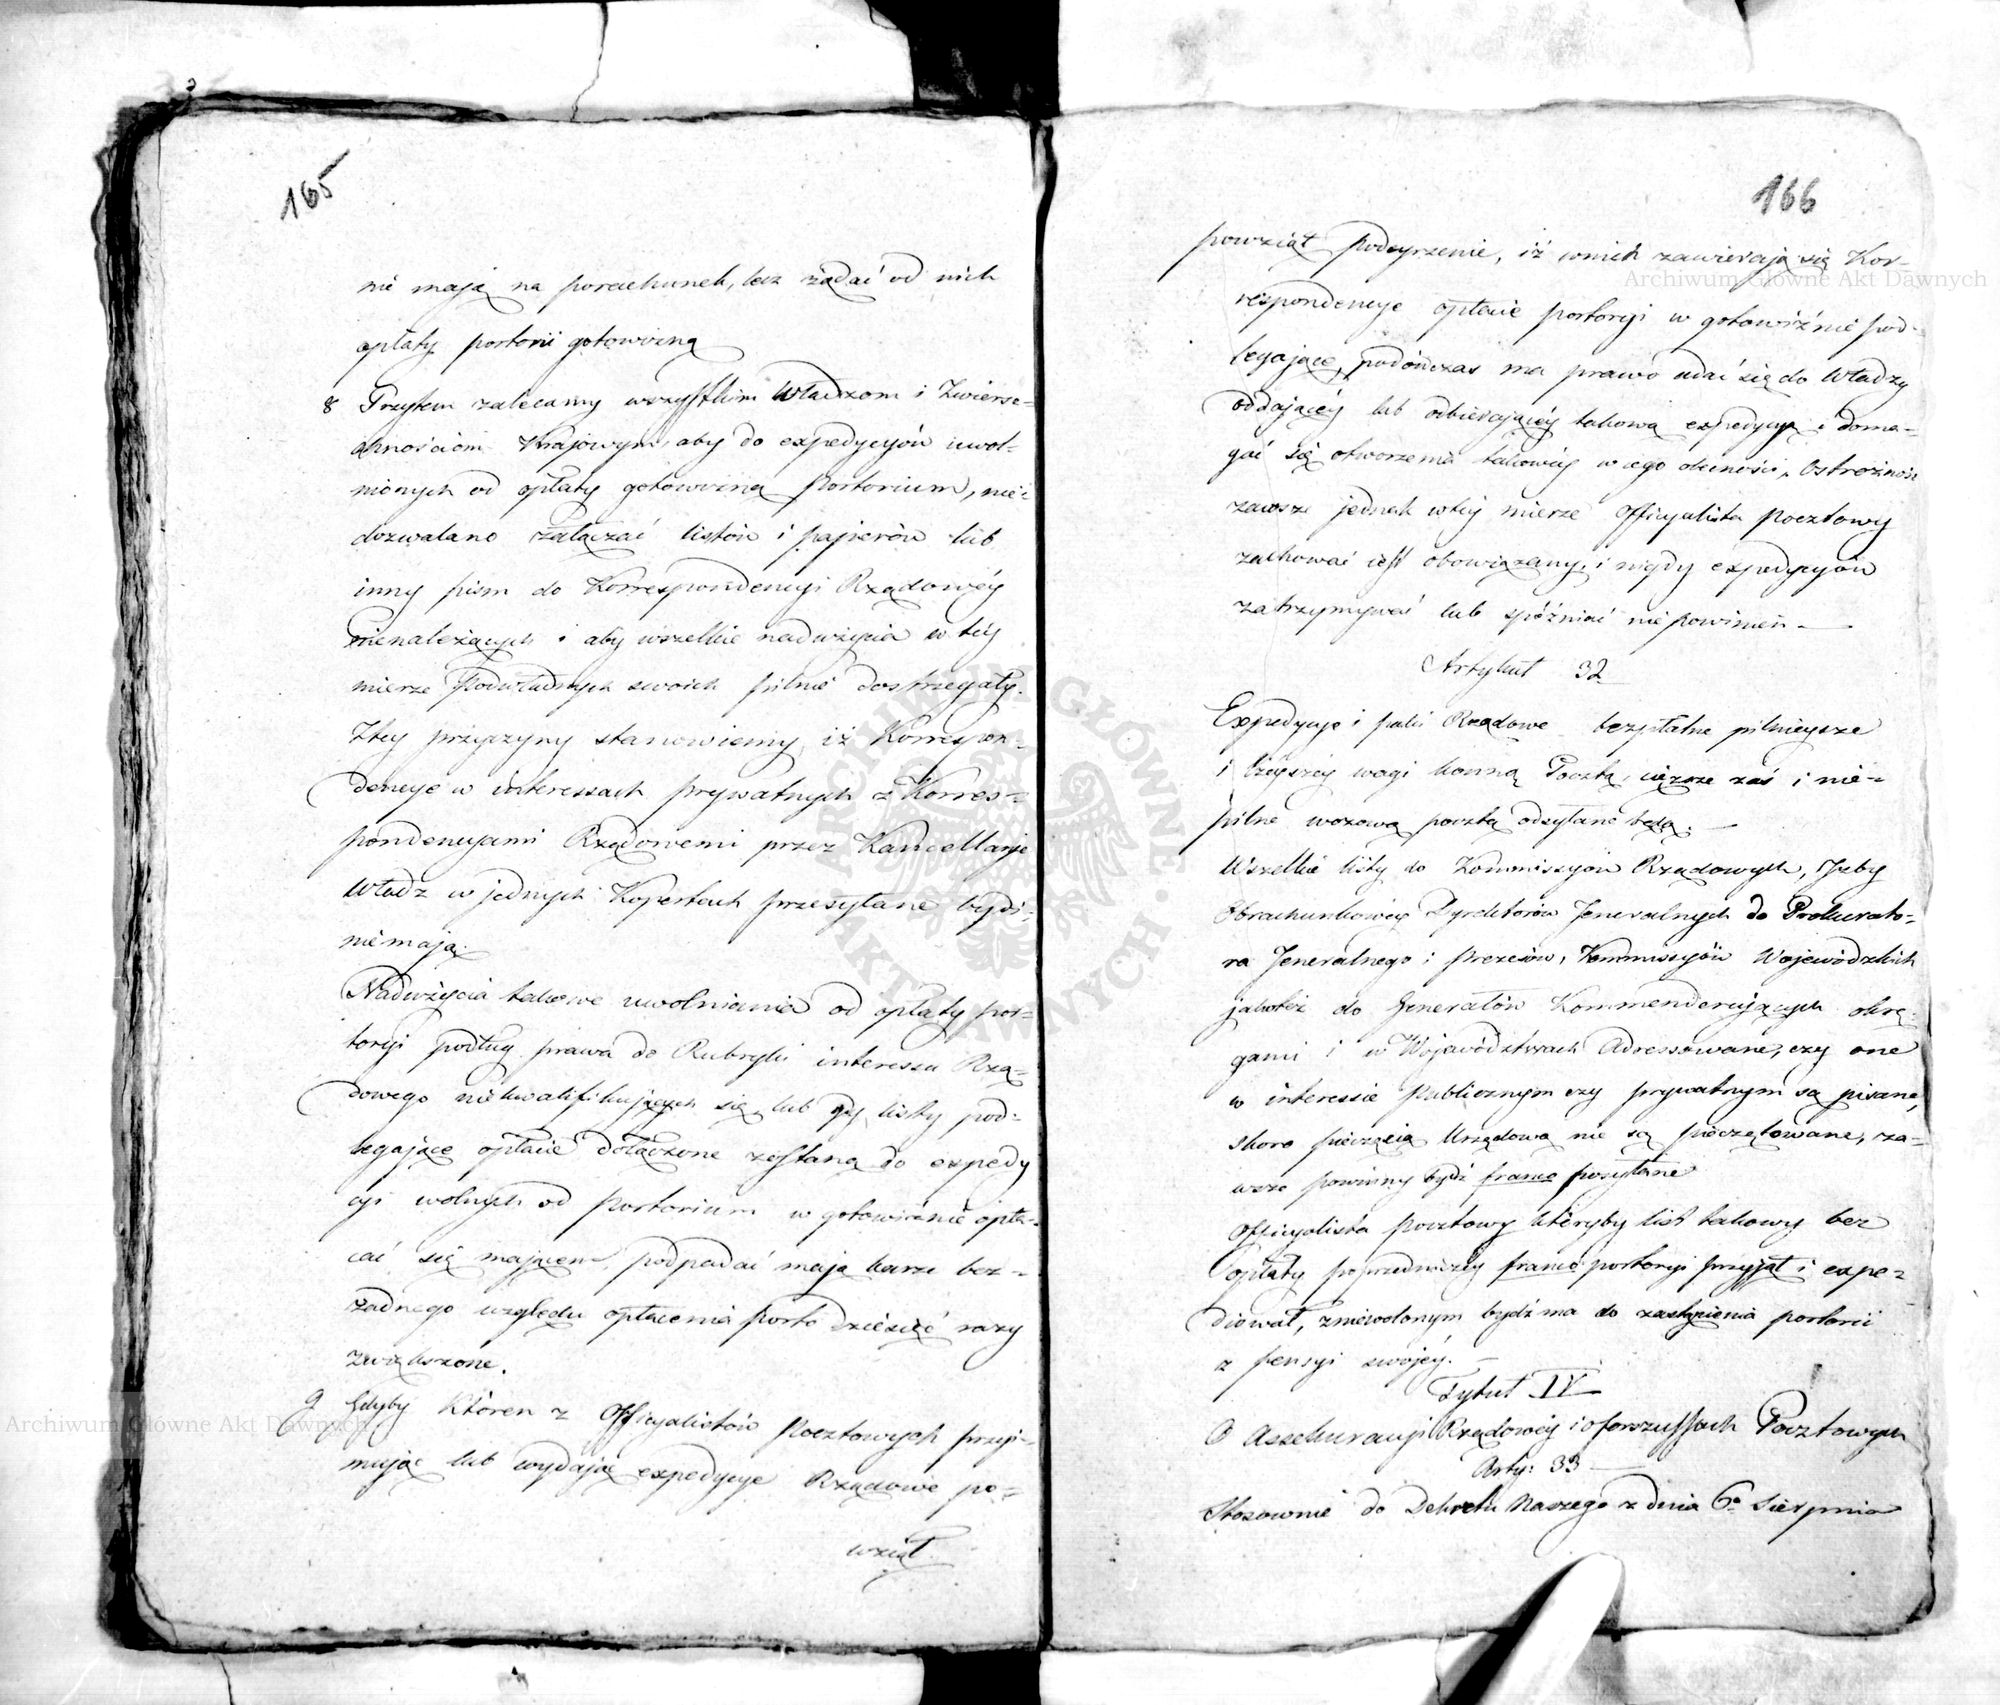 165
nie mają na porachunek, lecz żądać od nich
opłaty portorii gotowizną
8 Przytem zalecamy wszystkim Władzom i Zwierz-
chnościom Krajowym, aby do expedycyów uwol-
nionych od opłaty gotowizną Portorium, nie
dozwalano załączać listów i papierów lub
inny pism do Korrespondencyi Rządowéy
nienależących i aby wszelkie nadużycia w téy
mierze Podwładnych swoich pilnie dostrzegały.
Ztey przyczyny stanowiemy, iż Korrespon-
dencye w interessach prywatnych z Korres-
pondencyami Rządowemi przez Kancellarye
Władz w jednych Kopertach przesyłane bydź
nie mają.
Nadużycia takowe uwolnienia od opłaty por-
toryi podług prawa do Rubryki interessu Rzą-
dowego niekwalifikujących się, lub gdy listy pod-
legające opłacie dołączone zostaną do expedy
cyi wolnych od Portorium w gotowiznie opła-
cać się mającem, podpadać mają karze bez
żadnego względu opłacenia porto dziesięć razy
zwiększone.
9 Gdyby któren z Officyalistów Pocztowych przyi-
mując lub wydając expedycye Rządowe po-
wziął
166
powziął podeyrzenie, iż wnich zawierają się Kor-
respondencye opłacie portoryi w gotowiźnie pod-
legające, podówczas ma prawo udać się do Władzy
oddającéy lub odbierającéy takową expedycyą i doma-
gać się otworzenia takowéy w iego obecności. Ostrożność
zawsze jednak wtéy mierze Officyalista Pocztowy
zachować iest obowiązany, i nigdy expedycyów
zatrzymywać lub spóźniać nie powinien.
Artykuł 32
Expedycye i paki Rządowe bezpłatne pilnieysze
i lżeyszéy wagi konną Pocztą, cięższe zaś i nie-
pilne wozową pocztą odsyłane będą.
Wszelkie listy do Kommissyów Rządowych, Izby
Obrachunkowéy Dyrektorów Jeneralnych do Prokurato-
ra Jeneralnego i Prezesów, Kommissyów Wojewódzkich
jakoteż do Generałów Kommenderujących okrę-
gami i w Województwach Adressowane, czy one
w interessie Publicznym czy prywatnym są pisane,
skoro pieczęcią Urzędową nie są pieczętowane, za-
wsze powinny bydź franco posyłane
Officyalista pocztowy któryby list takowy bez
opłaty poprzedniczéy franco portoryi przyjął i expe-
diował, zniewolonym bydź ma do zastąpienia portorii
z pensyi swojey.
Tytuł IV
O Assekuracyi Rządowéy i o forszussach Pocztowych
Arty: 33
Stosownie do Dekretu Naszego z dnia 6o Sierpnia
Archiwum Główne Akt Dawnych
Archiwum Główne Akt Dawnych
ARCHIWUM GŁÓWNE AKT DAWNYCH